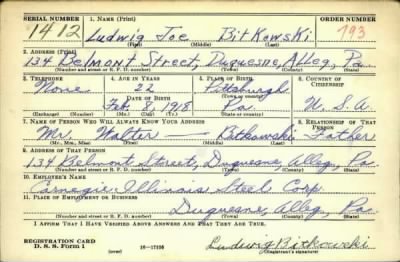 SERIAL NUMBER 1. NAME (Print) ORDER NUMBER
1412 Ludwig Joe Bitkowski 793
(First) (Middle) (Last)
2. ADDRESS (Print)
134 Belmont Street, Duquesne, Alleg, Pa.
(Number and street or R. F. D. number) (Town) (County) (State)
3. TELEPHONE 4. AGE IN YEARS 5. PLACE OF BIRTH 6. COUNTRY OF CITIZENSHIP
None 22 Pittsburgh
DATE OF BIRTH (Town or county)
Feb. 8, 1918 Pa. U. S. A.
(Exchange) (Number) (Mo.) (Day) (Yr.) (State or country)
7. NAME OF PERSON WHO WILL ALWAYS KNOW YOUR ADDRESS 8. RELATIONSHIP OF THAT PERSON
Mr. Walter — Bitkowski Father
(Mr., Mrs., Miss) (First) (Middle) (Last)
9. ADDRESS OF THAT PERSON
134 Belmont Street, Duquesne, Alleg, Pa
(Number and street or R. F. D. number) (Town) (County) (State)
10. EMPLOYER'S NAME
Carnegie Illinois Steel Corp.
11. PLACE OF EMPLOYMENT OR BUSINESS
Duquesne, Alleg, Pa.
(Number and street or R. F. D. number) (Town) (County) (State)
I AFFIRM THAT I HAVE VERIFIED ABOVE ANSWERS AND THAT THEY ARE TRUE.
REGISTRATION CARD
D. S. S. Form 1 (over) 16—17105 Ludwig Bitkowski
(Registrant's signature)